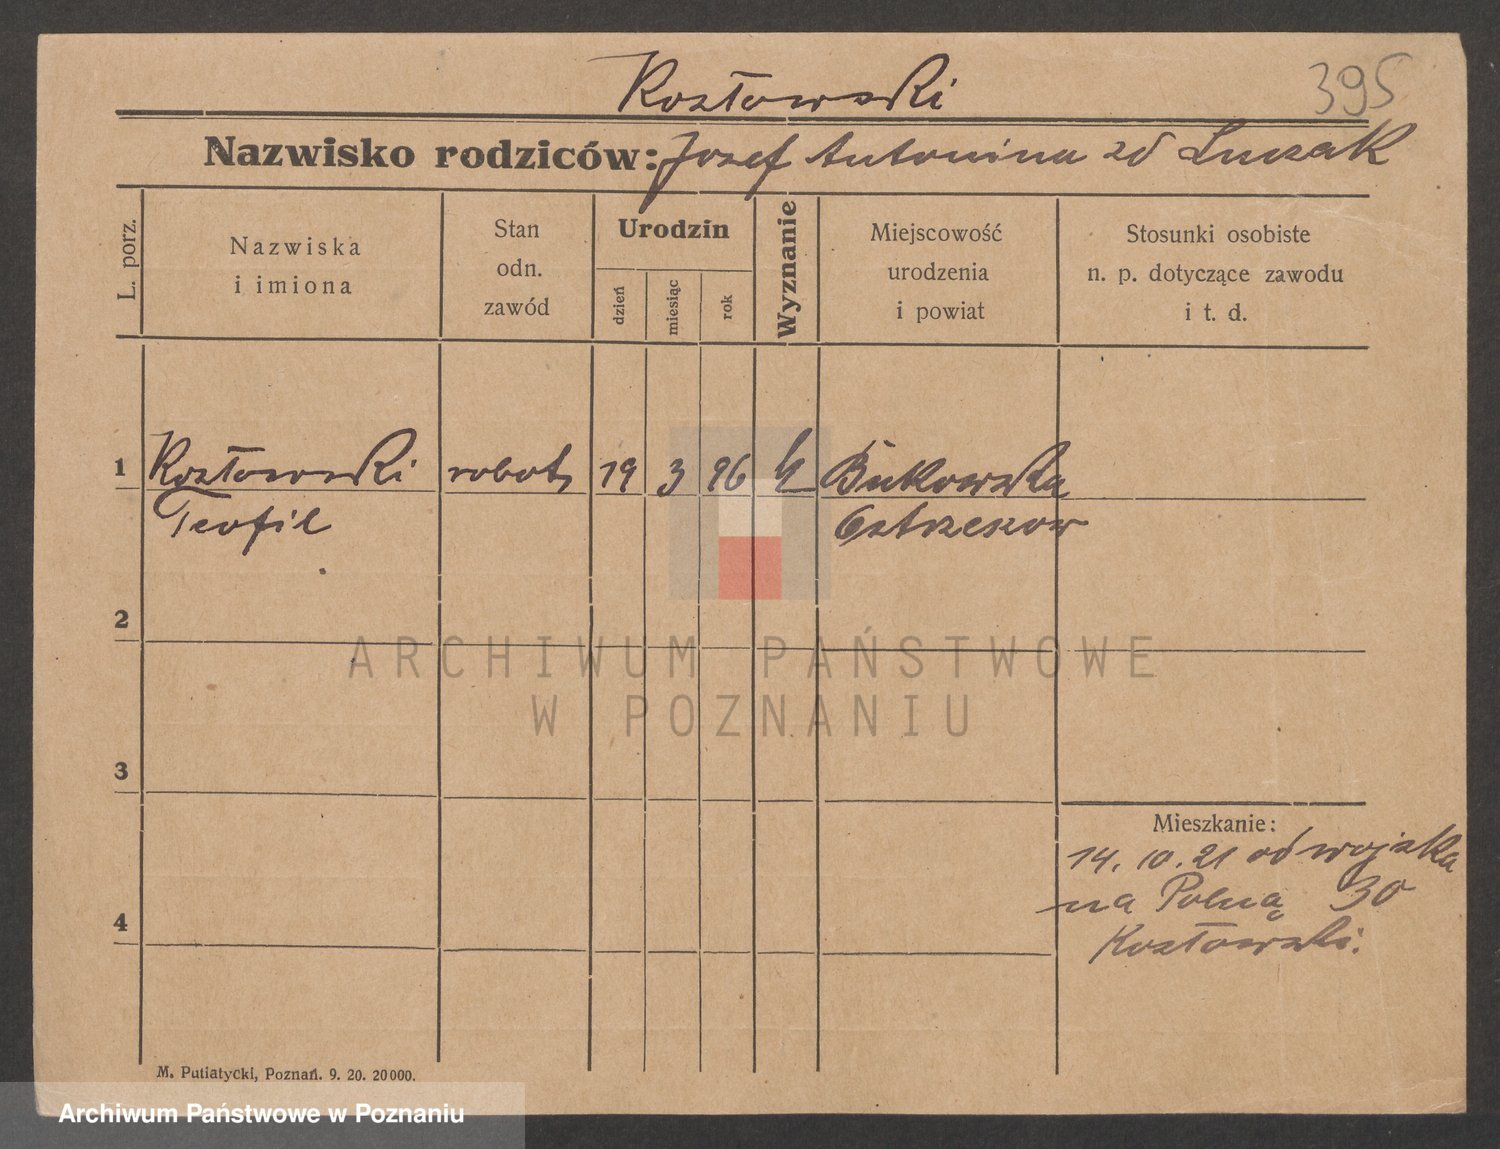 Kozłowski
395
Nazwisko rodziców: Jozef Antonina zd Luczak
L. porz.
Nazwiska
i imiona
Stan
odn.
zawód
Urodzin
dzień
miesiąc
rok
Wyznanie
Miejscowość
urodzenia
i powiat
Stosunki osobiste
n. p. dotyczące zawodu
i t. d.
1 Kozłowski robot 19 3 96 Bukowska
Teofil Ostrzeszow
2
ARCHIWUM PAŃSTWOWE
W POZNANIU
3
Mieszkanie:
14. 10. 21 od wojska
na Polną 30
4
Kozłowski.
M. Putiatycki, Poznań. 9. 20. 20000.
Archiwum Państwowe w Poznaniu